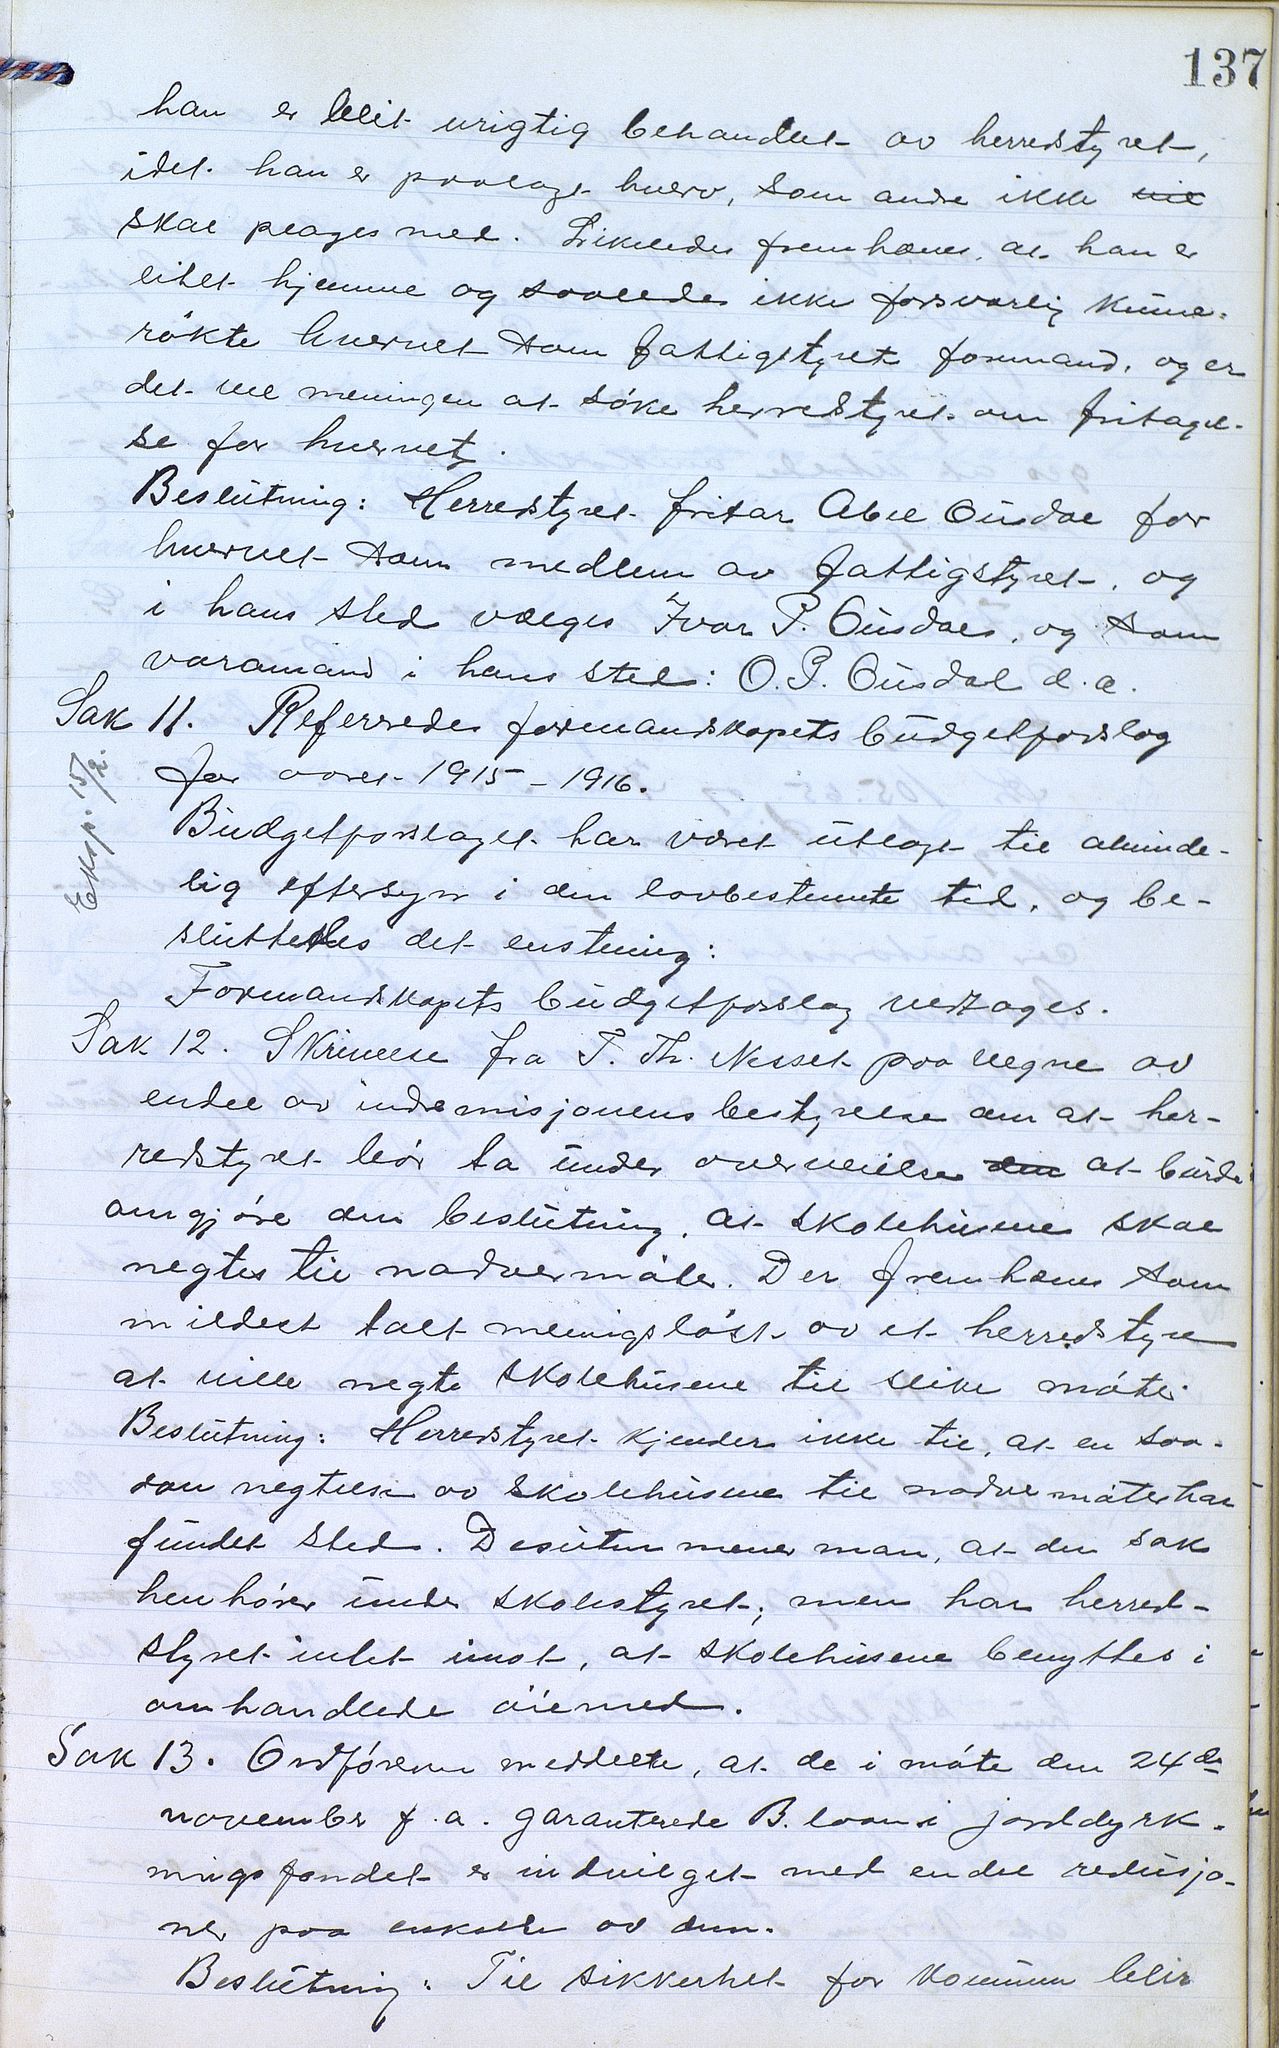 137
han er blit urigtig behandlet av herredstyret,
idet han er paalagt hverv, som andre ikke vil
skal plages med. Likeledes fremhæves, at han er
litet hjemme og saaledes ikke forsvarlig kunne
røkte hvervet som fattigstyrets formand, og er
det vel meningen at søke herredstyret om fritagel-
se for hvervet.
Beslutning: Herredstyret fritar Abel Ousdal for
hvervet som medlem av fattigstyret, og
i hans sted vælges Ivar P. Ousdal, og som
varamand i hans sted: O. P. Ousdal d.æ.
Sak 11. Referredes formandskapets budgetforslag
for aaret 1915-1916.
Eksp. 15/2.
Budgetforslaget har været utlagt til alminde-
lig eftersyn i den lovbestemte tid, og be-
sluttedes det enstemmig:
Formandskapets budgetforslag vedtages.
Sak 12. Skrivelse fra T. Th. Nesset paa vegne av
endel av indremisjonens bestyrelse om at her-
redstyret bør ta under overveielse om at burde
omgjøre den beslutning, at skolehusene skal
negtes til nadvermøter. Der fremhæves som
mildest talt meningsløst av et herredstyre
at ville negte skolehusene til slike møter.
Beslutning: Herredstyret kjender ikke til, at en saa-
dan negtelse av skolehusene til nadvermøter har
fundet sted. Desuten mener man, at den sak
henhører under skolestyret; men har herred-
styret intet imot, at skolehusene benyttes i
omhandlede øiemed.
Sak 13. Ordføreren meddelte, at de i møte den 24de
november f.a. garanterede B. laan i jorddyrk-
ningsfondet er indvilget med endel redusjo-
ner paa enkelte av dem.
Beslutning: Til sikkerhet for kommunen blir